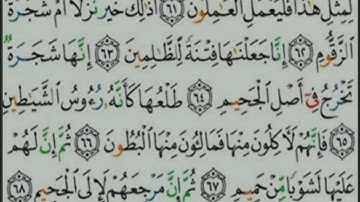 لِمِثْلِ هَٰذَا فَلْيَعْمَلِ الْعَامِلُونَ ٦١ أَذَٰلِكَ خَيْرٌ نُزُلًا أَمْ شَجَرَةُ
الزَّقُّومِ ٦٢ إِنَّا جَعَلْنَاهَا فِتْنَةً لِلظَّالِمِينَ ٦٣ إِنَّهَا شَجَرَةٌ
تَخْرُجُ فِي أَصْلِ الْجَحِيمِ ٦٤ طَلْعُهَا كَأَنَّهُ رُءُوسُ الشَّيَاطِينِ
٦٥ فَإِنَّهُمْ لَآكِلُونَ مِنْهَا فَمَالِئُونَ مِنْهَا الْبُطُونَ ٦٦ ثُمَّ إِنَّ لَهُمْ
عَلَيْهَا لَشَوْبًا مِنْ حَمِيمٍ ٦٧ ثُمَّ إِنَّ مَرْجِعَهُمْ لَإِلَى الْجَحِيمِ ٦٨